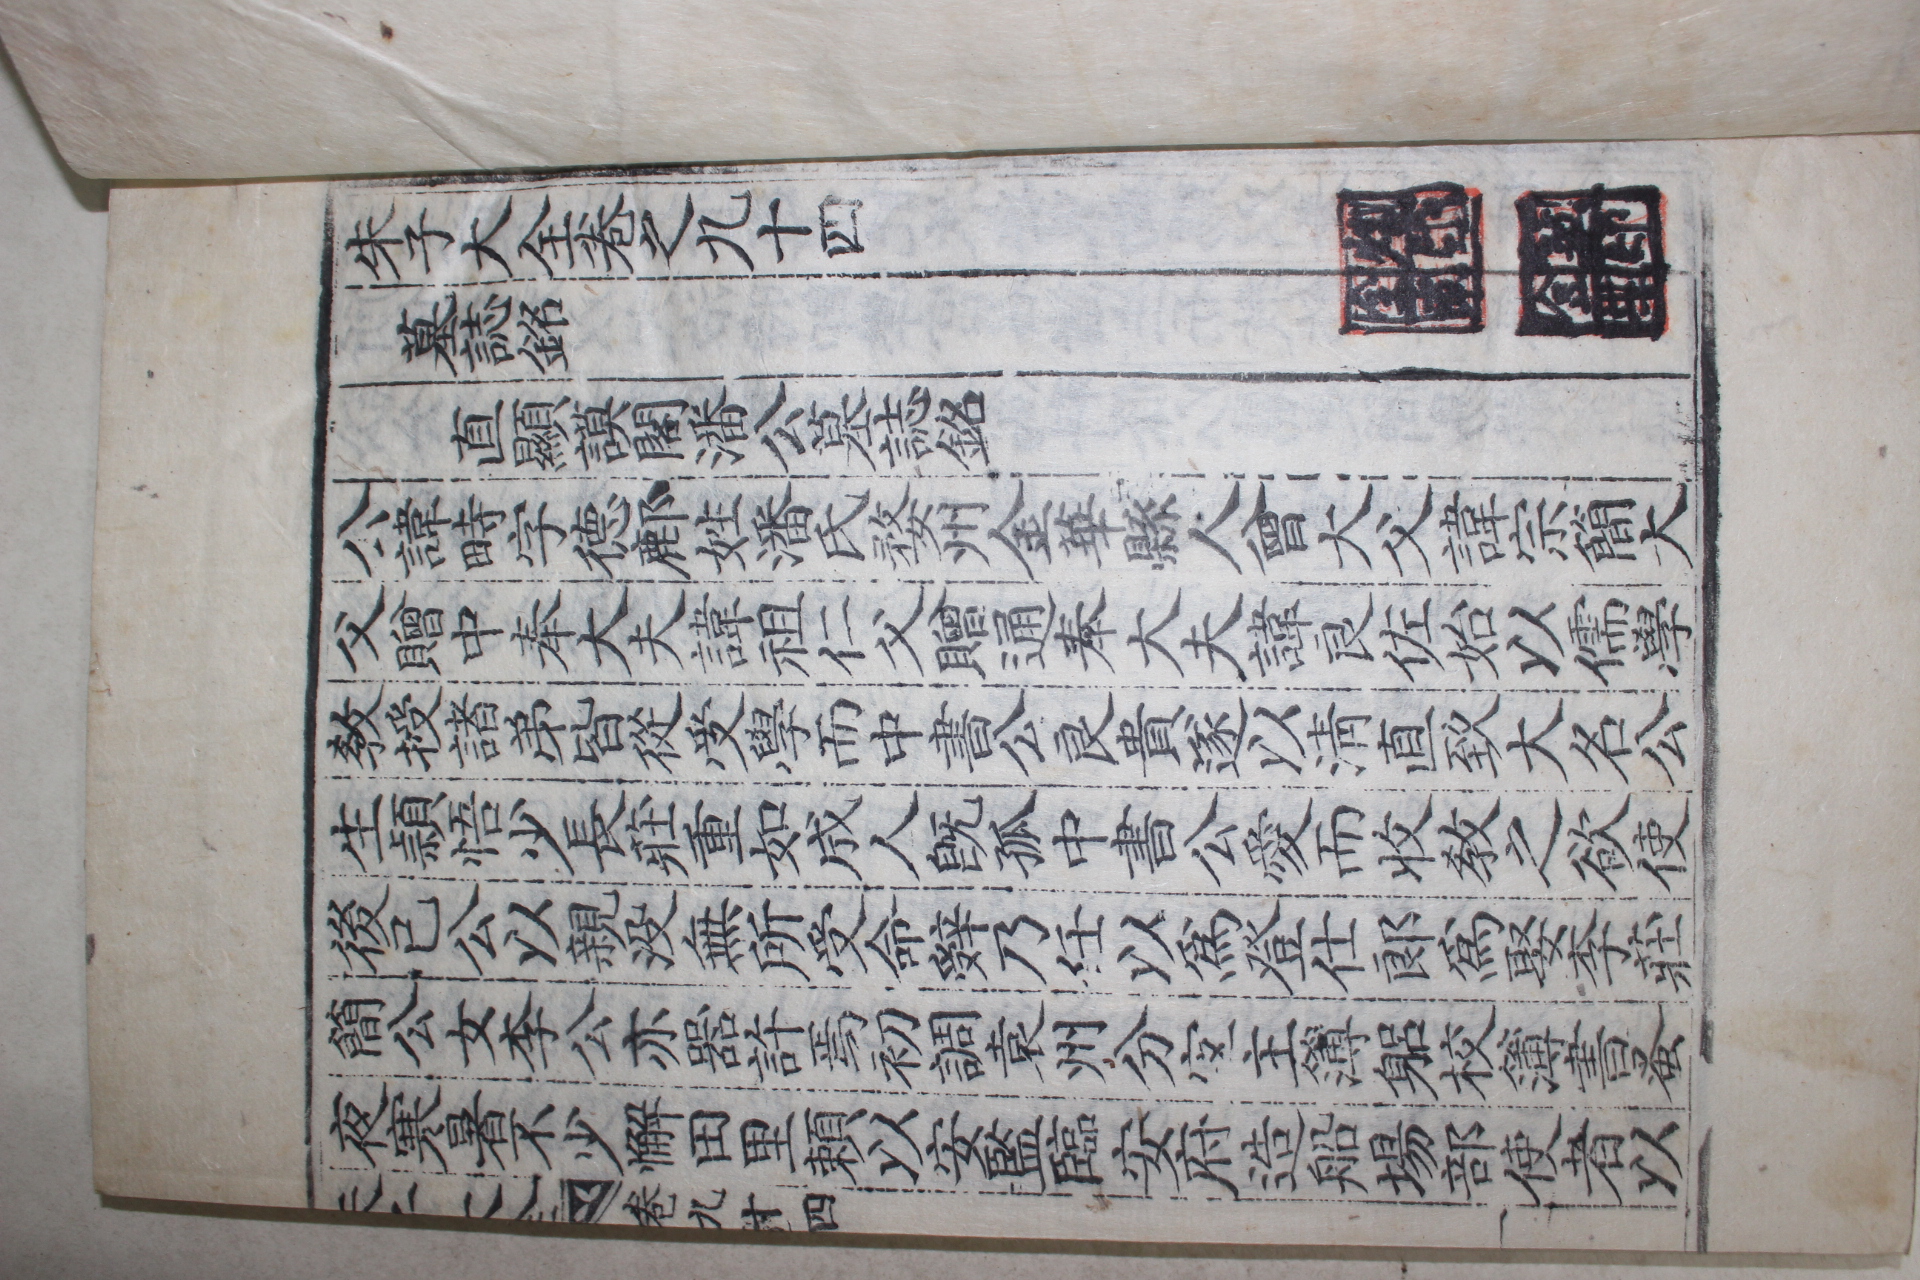 朱子大全卷之九十四
墓誌銘
直顯謨閣潘公墓誌銘
公諱畤字德鄜姓潘氏婺州金華縣人曾大父諱宗簡大
父贈中奉大夫諱祖仁父贈通奉大夫諱良佐始以儒學
教授諸弟皆從受學而中書公良貴遂以淸直致大名公
生穎悟少長莊重如成人旣孤中書公愛而收教之欲使
後己公以親没無所受命辭乃任以爲登仕郎爲娶李莊
簡公女李公亦器許焉初調袁州分宜主簿躬校簿書蚤
夜寒暑不少懈田里賴以安監臨安府造船場部使者以
朱子大全 卷九十四